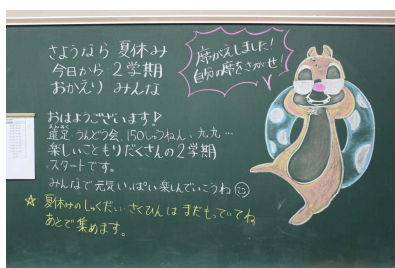 さようなら 夏休み
今日から 2学期
おかえり みんな
席がえしました!
自分の席をさがせ!
おはようございます
鑑定、うんどう会、150しゅうねん、九九…
楽しいこともりだくさんの2学期
スタートです。
みんなで元気いっぱい楽しんでいこうね
☆ 夏休みのしゅくだい・さくひんは まだもっていてね
あとで集めます。